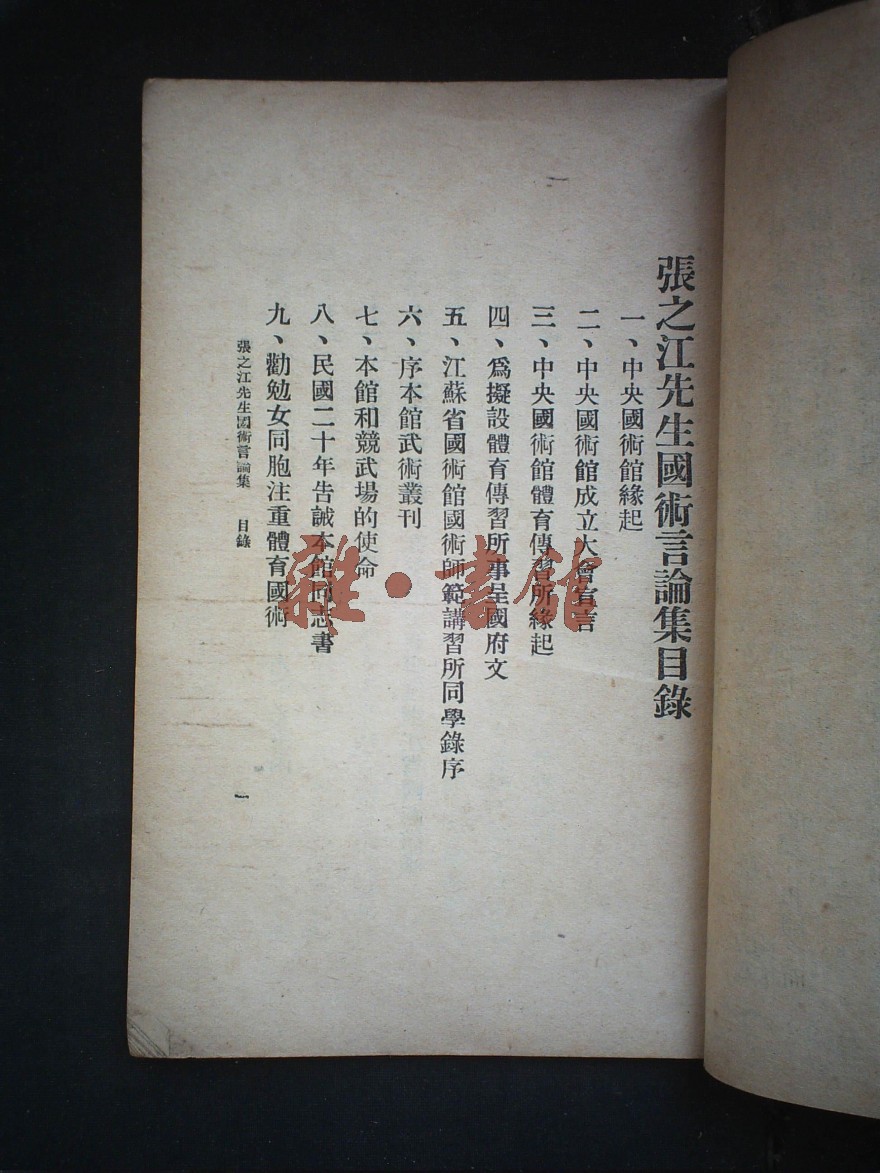 張之江先生國術言論集目錄
一、中央國術館緣起
二、中央國術館成立大會宣言
三、中央國術館體育傳習所緣起
四、爲擬設體育傳習所事呈國府文
五、江蘇省國術館國術師範講習所同學錄序
六、序本館武術叢刊
七、本館和競武場的使命
八、民國二十年告誡本館同志書
九、勸勉女同胞注重體育國術
張之江先生國術言論集 目錄
一
雜·書館